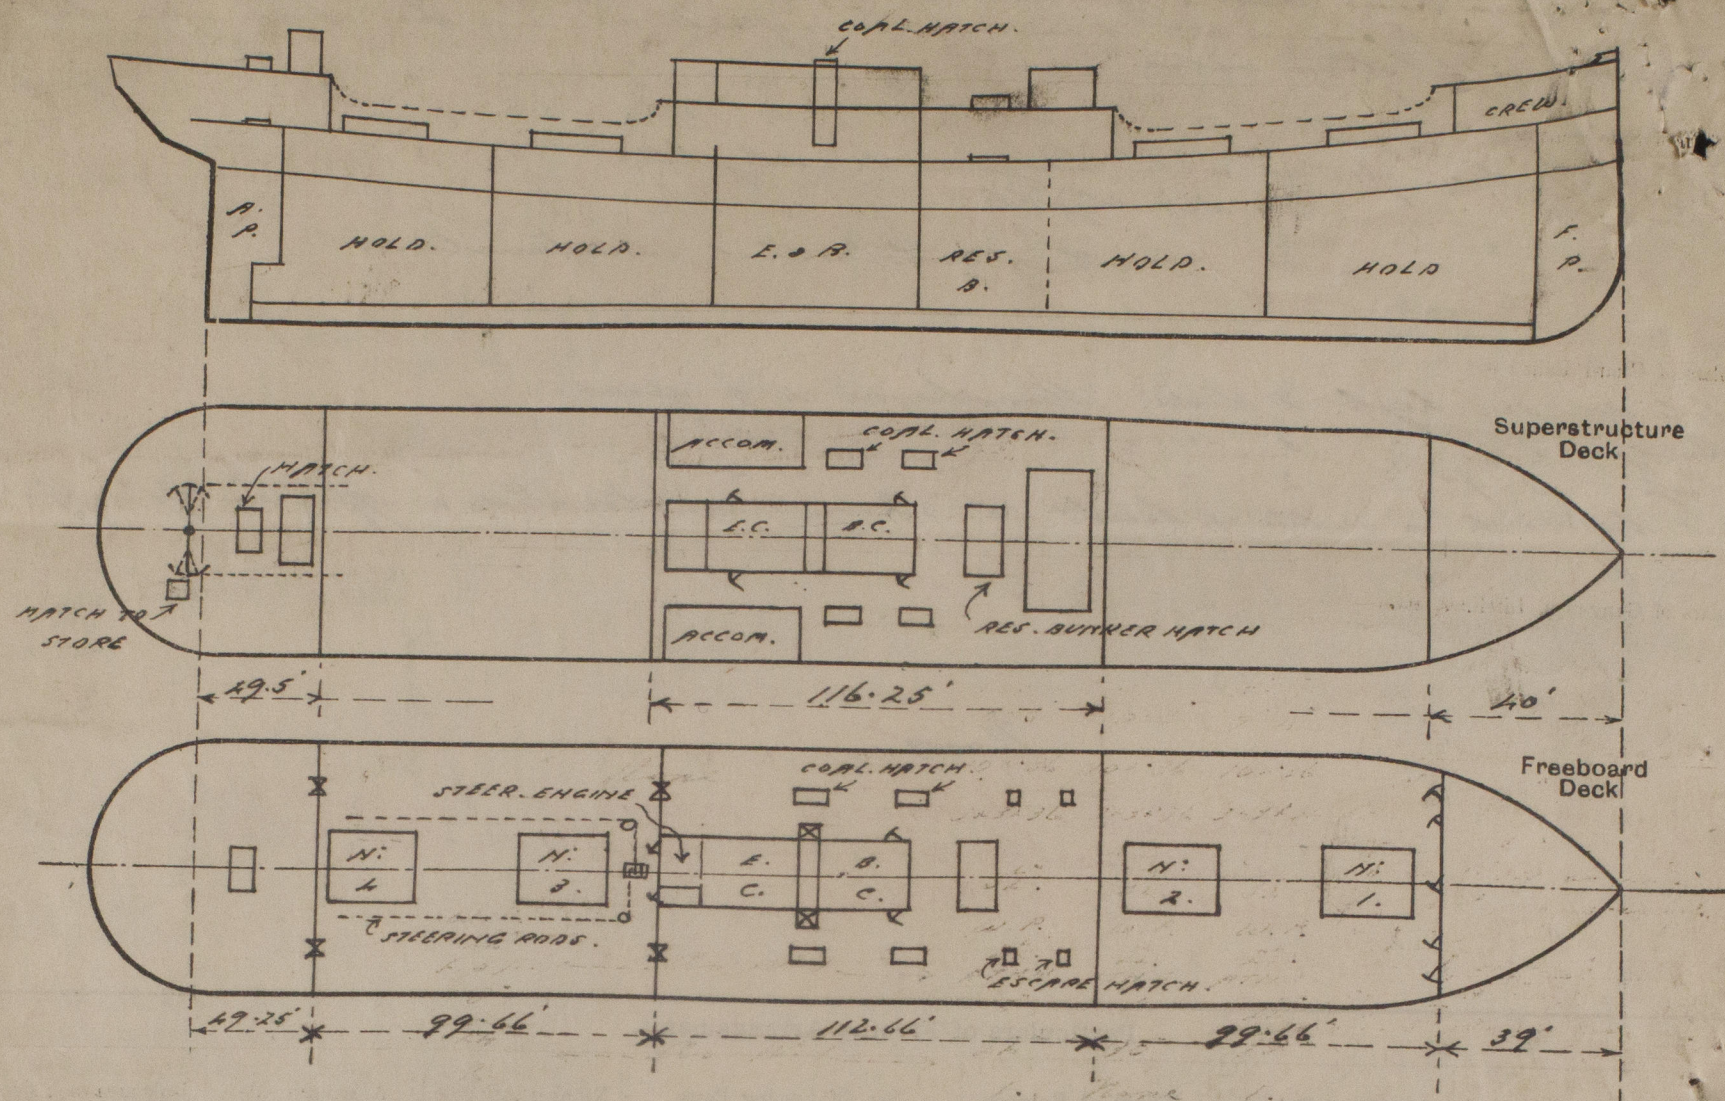 COAL. HATCH.
CREW.
A.
P.
HOLD.
HOLD.
E. & B.
RES.
B.
HOLD.
HOLD
F.
P.
Superstructure
Deck
ACCOM.
COAL. HATCH.
HATCH.
E.C.
B.C.
HATCH TO
STORE
ACCOM.
RES. BUNKER HATCH
29.5'
116.25'
40'
Freeboard
Deck
COAL. HATCH.
STEER. ENGINE
N:
4
N:
3.
E.
C.
B.
C.
N:
2.
N:
1.
STEERING RODS.
ESCAPE HATCH.
99.66'
112.66'
99.66'
39'